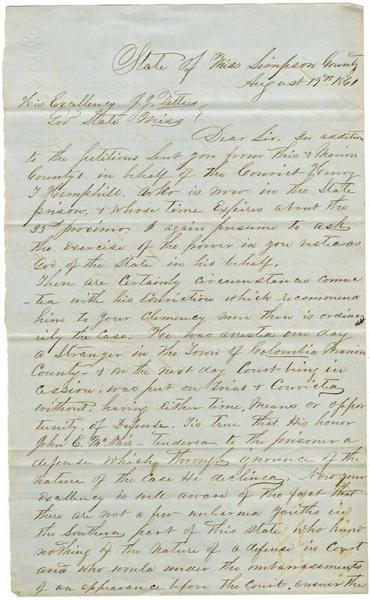 State of Miss Simpson County
August 19th 1861
His Excellency J. J. Pettus,
Gov State Miss
Dear Sir. In addition
to the petitions sent you from this & Marion
County's in behalf of the Convict Henry
T Hemphill. Who is now in the State
prison, & whose time Expires about the
proximo. I again presume to ask
the exercise of the power in you vested as
Gov of the State in his behalf.
There are Certainly circumstances connec
-ted with his Conviction which recommend
him to your Clemency more than is ordinar
ily the Case. He was arrested one day
a stranger in the Town of Columbia Marion
County - & on the next day Court being in
Session, was put on Trial & Convicted
without, having either time, means or oppor
tunity, of Defense. Tis true that His honor
John E. McNair - tendered to the prisoner a
defense which through ignorance of the
nature of the Case He declined. Now your
Excellency is well aware of the fact that
there are not a few unlearned youths in
the Southern part of this state who know
nothing of the nature of a defense in Court
and who would under the embarrassments
of an appearance before the Court, answer the